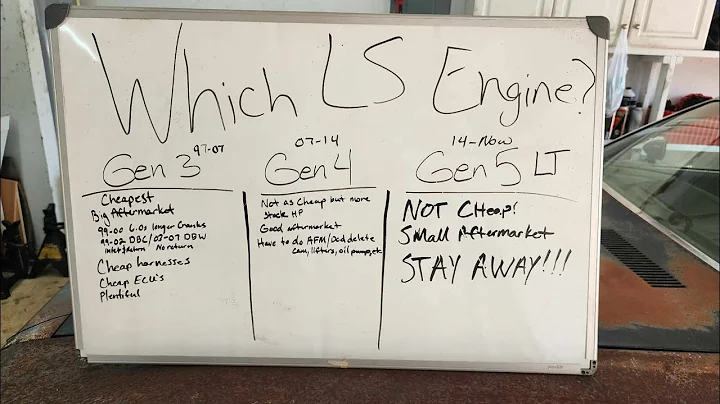 Which LS Engine?
Gen 3 97-07
Cheapest
Big Aftermarket
99-00 6.0s longer Cranks
99-02 DBC/03-07 DBW
inlet/return No return
Cheap harnesses
Cheap ECU's
Plentiful
07-14
Gen 4
Not as Cheap but more
stock HP
Good aftermarket
Have to do AFM/Dod delete
Cam, lifters, oil pump, etc
14-Now
Gen 5 LT
NOT CHeap!
Small Aftermarket
STAY AWAY!!!